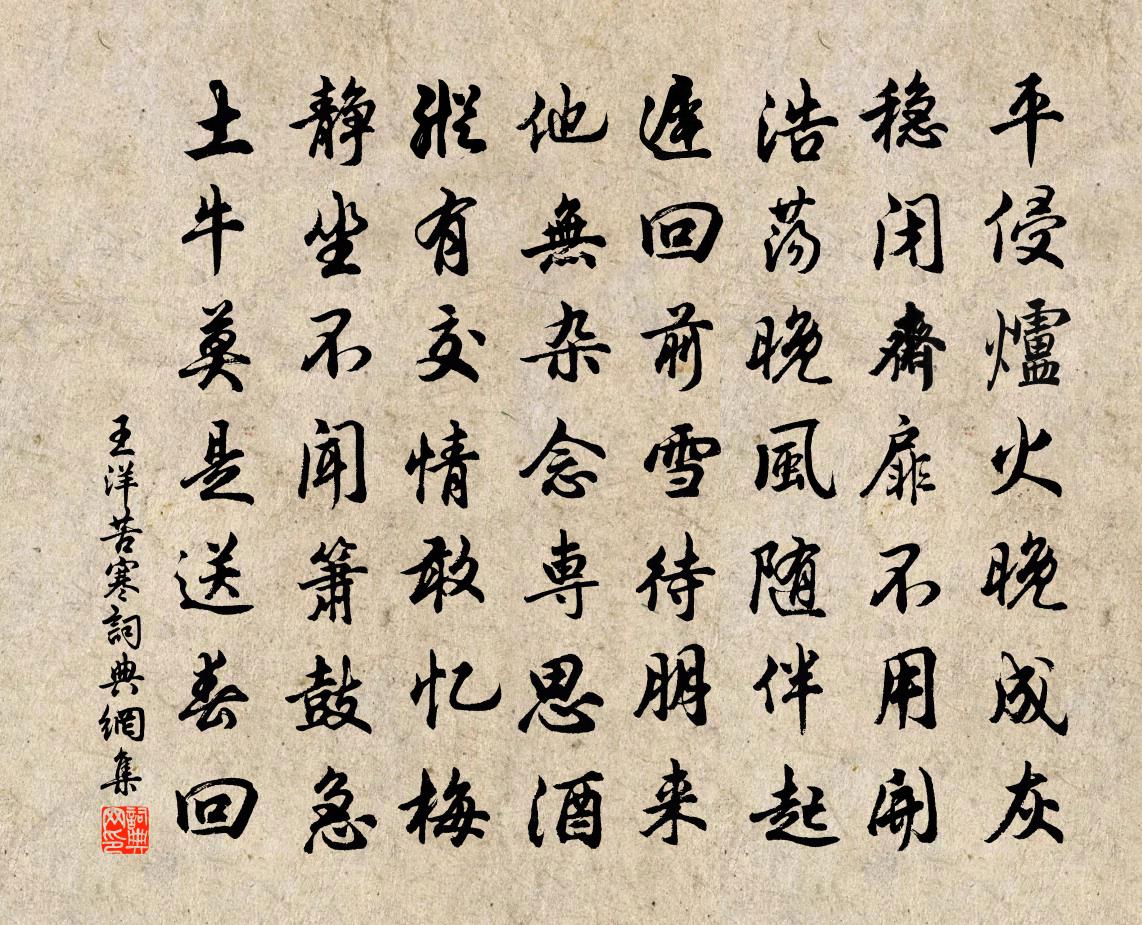 平侵爐火晚成灰
稳闭齋扉不用開
浩荡晚風随伴起
遲回前雪待朋来
他無杂念専思酒
縱有交情敢忆梅
静坐不闻箫鼓急
土牛莫是送春回
王洋苦寒詞典網集
詞典網印